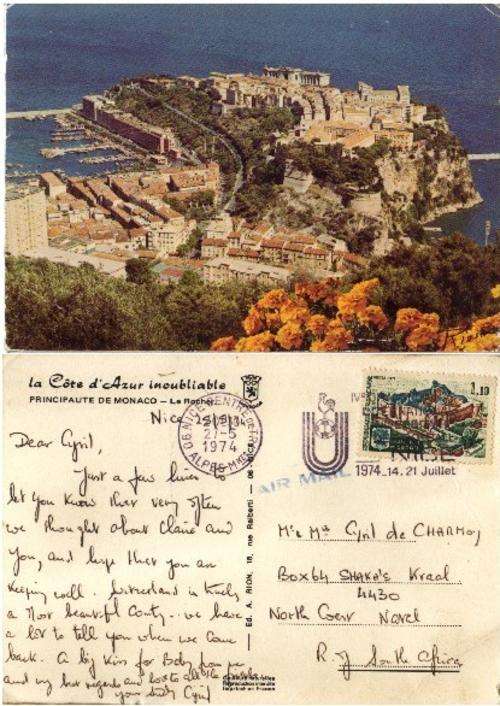 la Côte d'Azur inoubliable
PRINCIPAUTE DE MONACO – Le Rocher
Nice
06 NICE CENTRE
21-5
1974
ALPES-MMES
1.10
NICE
1974_14.21 Juillet
AIR MAIL
Dear Cyril,
Just a few lines
let you know that very often
we thought about Claire and
you, and hope that you are
keeping well. Switzerland is truly
a most beautiful Conty.. we have
a lot to tell you when we come
back. A big kiss for Baby from me
and my best regards and to all
your
Ed. A. RION, 18, rue Raiberti - 06
Mr & Ms Cyril de CHARMOY
Box 64 SHAKA'S Kraal
4430
North Coast Natal
R. of South Africa
Reproduction interdite
Imprimé en France